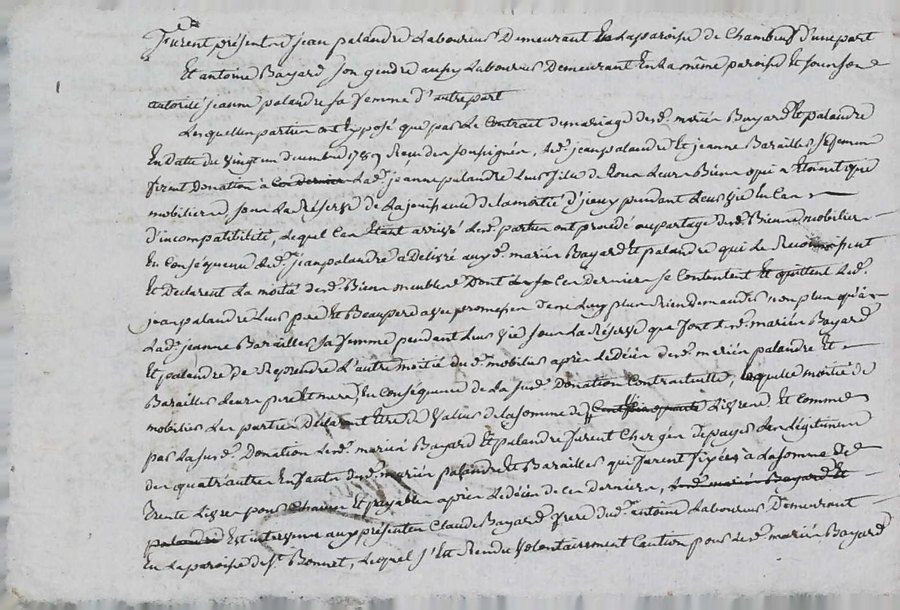 Furent présents Jean palandre Laboureur Demeurant En La paroisse de Chambeuf d'une part
Et antoine Bayard son gendre aussy Laboureur Demeurant En La même paroisse Et sous son
autorité jeanne palandre sa femme d'autre part
Lesquelles parties ont Exposé que par Le Contrat de mariage desd. mariés Bayard Et palandre
En date du vingt un decembre 1789 Reçu des soussignés, Led. jean palandre Et jeanne Barailles sa femme
firent Donation à Ces derniers Lad. jeanne palandre Leur fille de tous Leurs Biens qui n'étoient que
mobiliers, sous La Réserve de La jouissance de La moitié d'jceux pendant Leurs vie En Cas
d'incompatibilité, Lequel Cas Etant arrivé Lesd. parties ont procédé au partage desd. Biens mobiliers
En Conséquence Led. jean palandre a Délivré auxd. mariés Bayard Et palandre qui Le Reconnoissent
Et Declarent La moitié desd. Biens meubles Dont Ces derniers se Contentent Et quittent Led.
jean palandre Leur pere Et Beaupere avec promesse de ne Luy plus Rien Demander non plus qu'à
Lad. jeanne Barailles sa femme pendant Leurs vie sous La Réserve que font Lesd. mariés Bayard
Et palandre de Reprendre L'autre moitié dud. mobilier après Le décès desd. mariés palandre Et
Barailles Leurs pere Et mere En Conséquence de La susd. Donation Contractuelle, Laquelle moitié de
mobilier Les parties déclarent Etre de valeur de La somme de Cent Cinquante Livres. Et Comme
par La susd. Donation Lesd. mariés Bayard Et palandre furent Chargés de payer Les Légitimes
des quatre autres Enfants desd. mariés palandre Et Barailles qui furent fixées à La somme de
trente Livres pour Chacun Et payables après Le décès de ces derniers, Lesd. mariés Bayard Et
palandre Est intervenu aux présentes Claude Bayard frere dud. antoine Laboureur Demeurant
En La paroisse de St. Bonnet, Lequel s'Est Rendu volontairement Caution pour Lesd. mariés Bayard